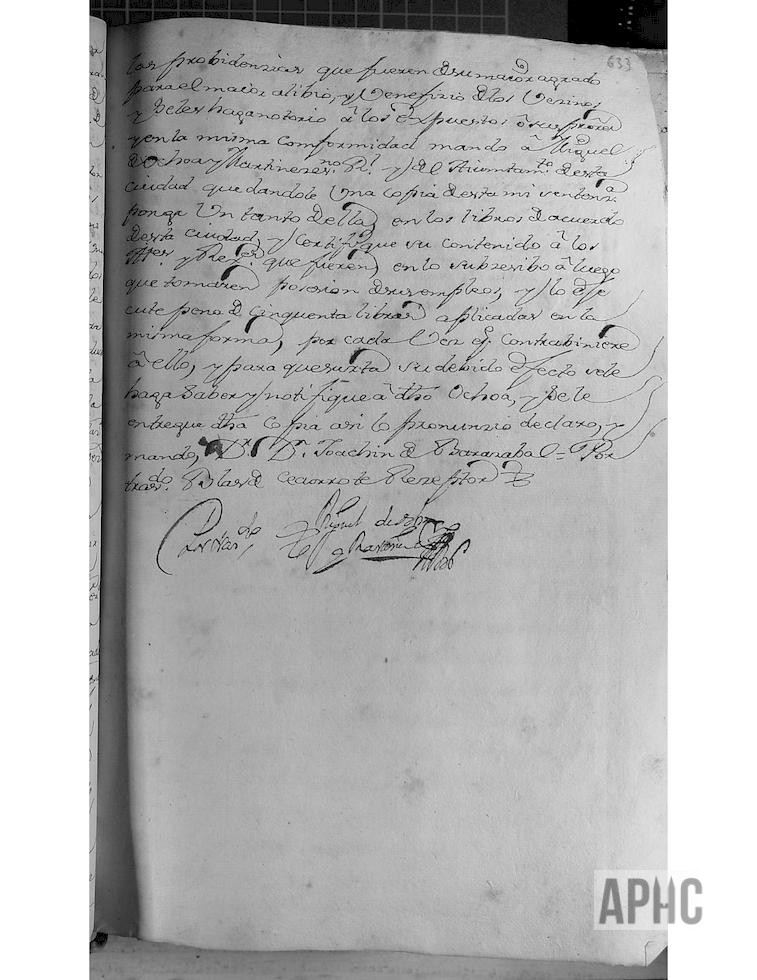 633
las probidenzias que fueren de su maior agrado
para el maior alibio, y Venefizio de los Vezinos
y se les haga notorio à los Expuestos ò sus pro.res
y en la misma comformidad mando à Miguel
de Ochoa y Martinez es.no R.l y del Aiuntam.to desta
ciudad que dandole Una copia desta mi sentenz.a
ponga Un tanto de ella en los libros de acuerdo
desta ciudad, y Certifique su contenido à los
y Rex.res que fueren, en lo subzesibo à luego
que tomaren posesion de sus empleos, y lo ese
cute pena de Cinquenta libras aplicadas en la
misma forma, por cada Vez q.e contrabiniere
à ello, y para que surta su debido efecto se le
haga saber y notifique à dho Ochoa, y se le
entregue dha copia asi lo pronunzio declaro, y
mando, D.r D.n Joachin de Barazabal = Por
tras.do Blas de Cecorrote Rezeptor
Por tras.do Miguel de Ochoa
y Martinez
APHC